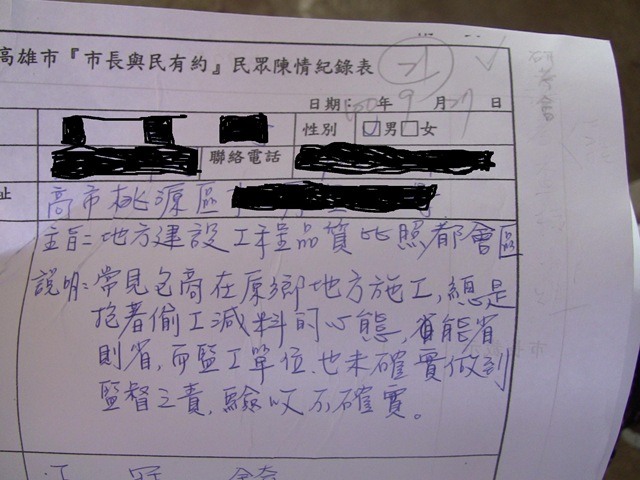 高雄市『市長與民有約』民眾陳情紀錄表
21
日期：100年9月27日
性別 ☑男□女
聯絡電話
址 高市桃源區
主旨：地方建設工程品質比照都會區
說明：常見包商在原鄉地方施工，總是
抱著偷工減料的心態，省能省
則省，而監工單位，也未確實做到
監督之責，驗收不確實。
研考會